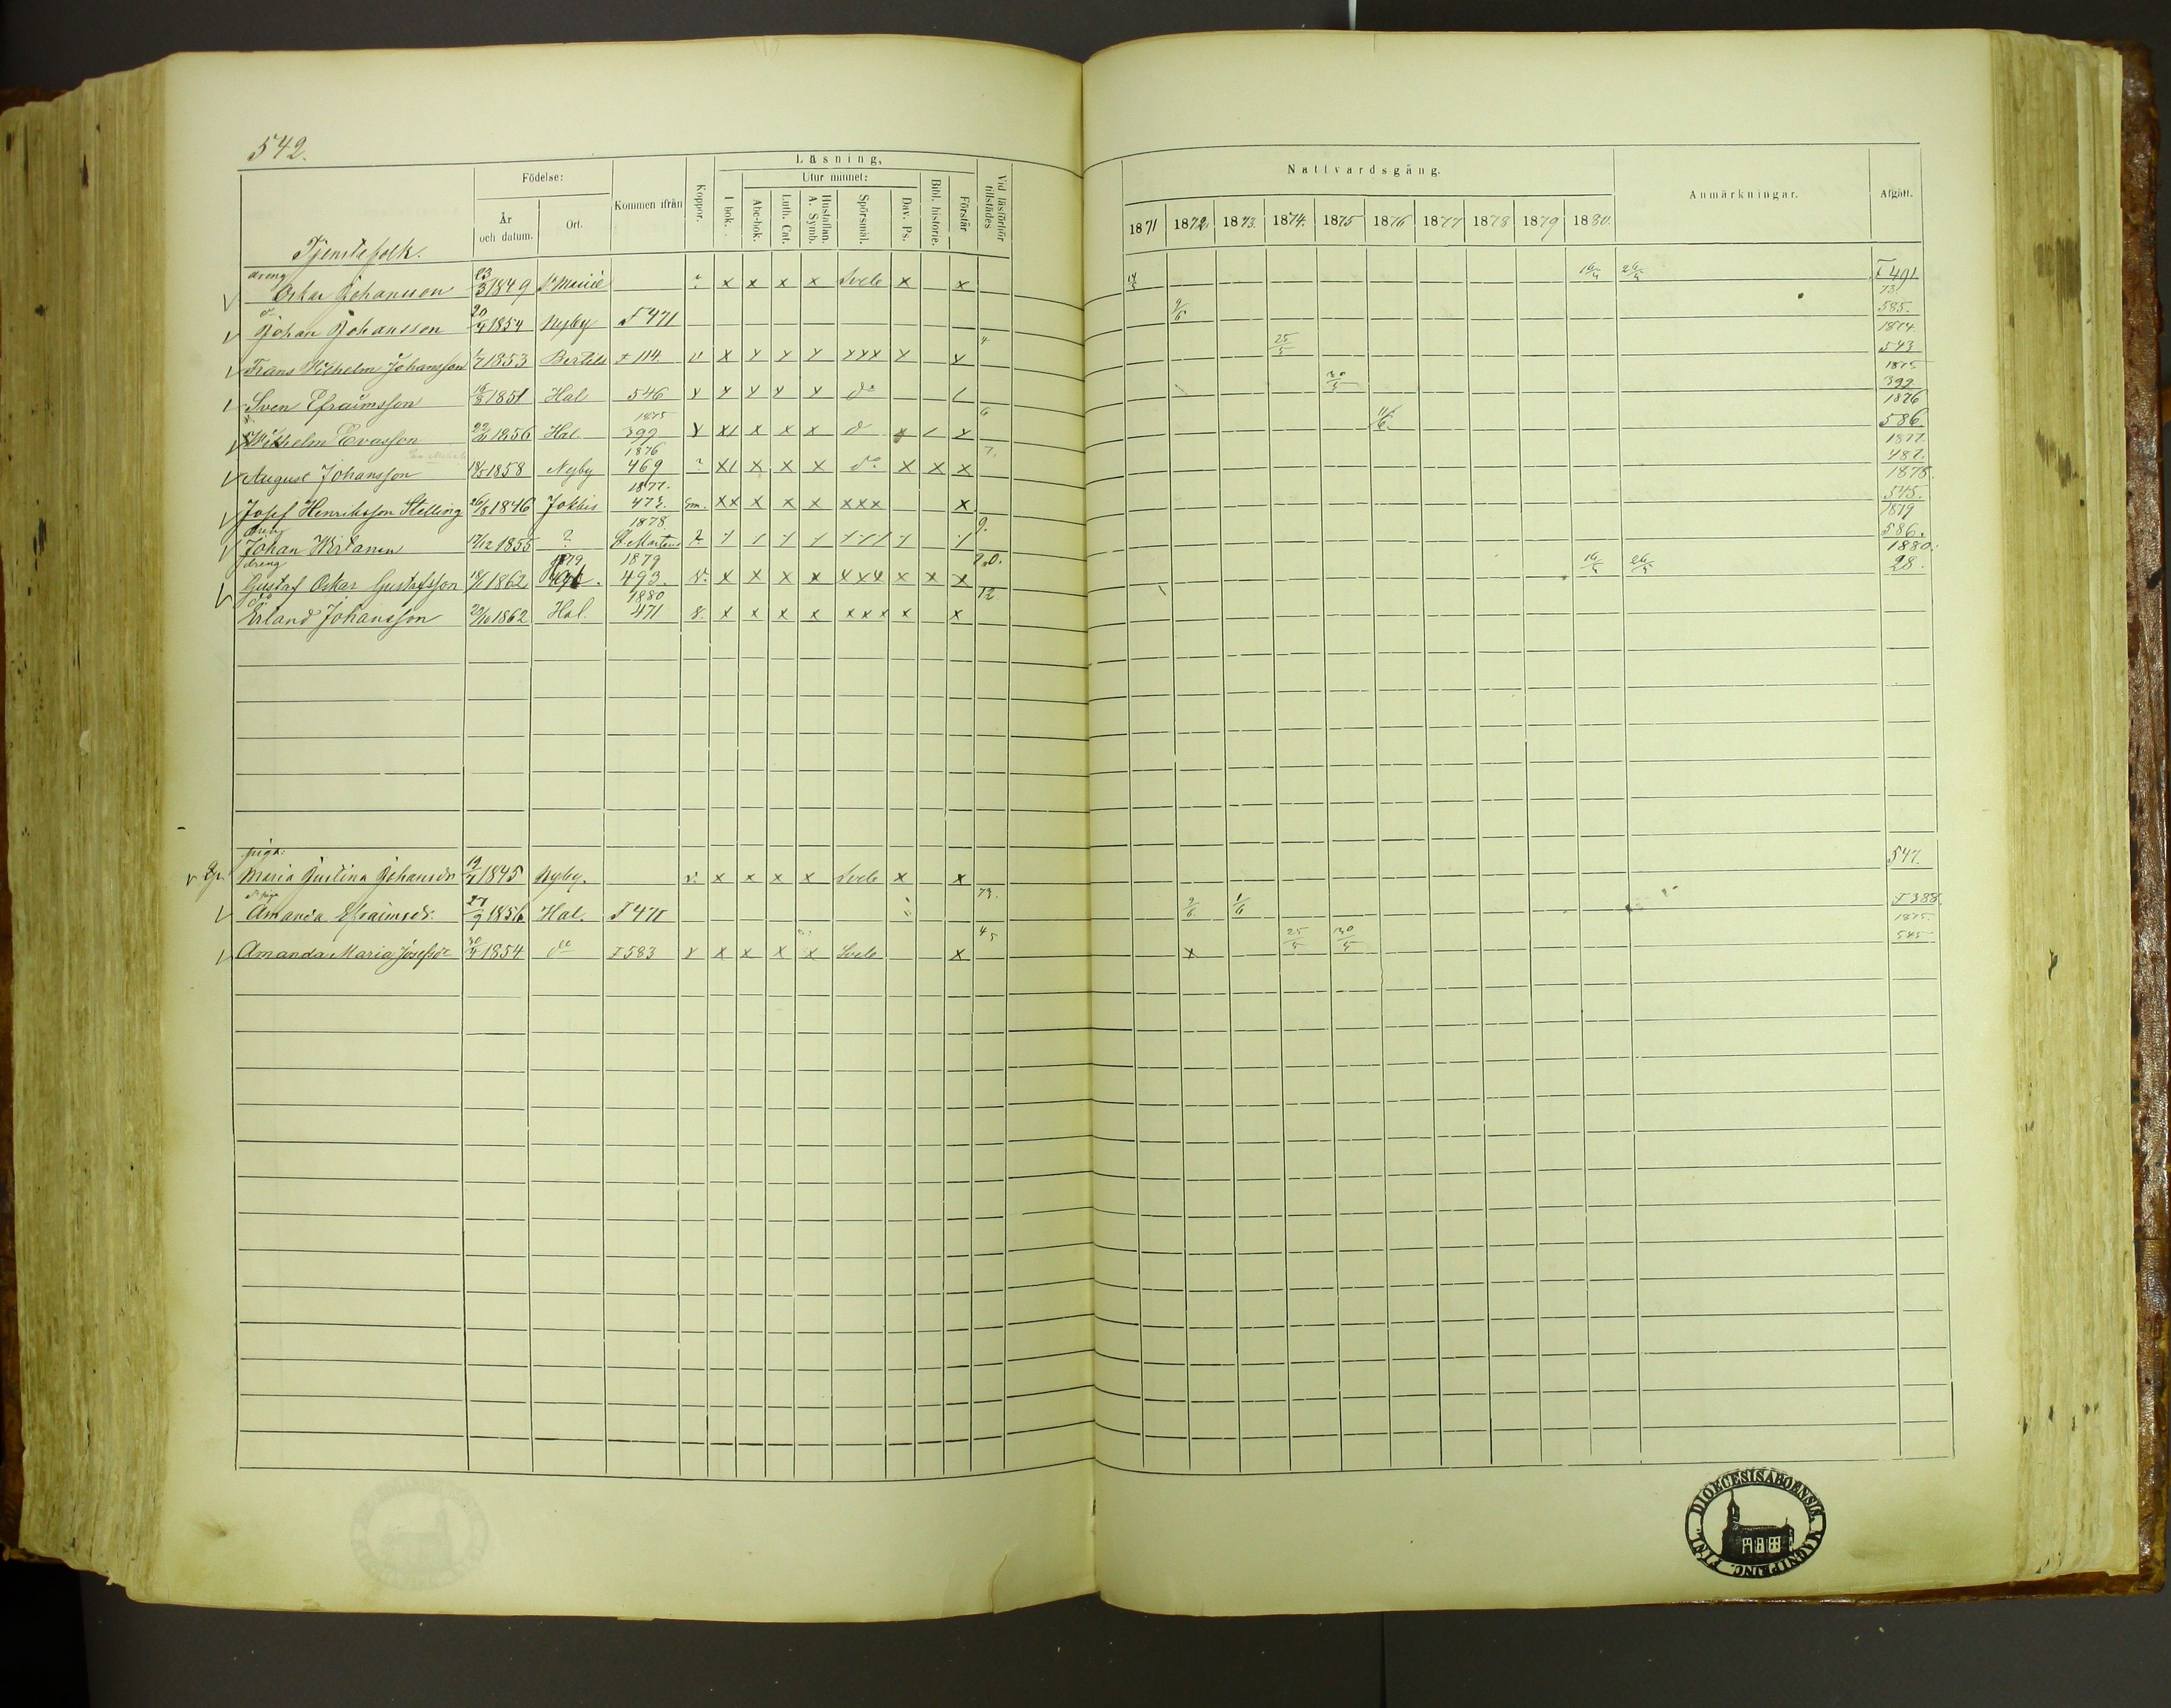 542.
Läsning,
Födelse:
Kommen ifrån
Koppor.
Utur minnet:
Vid läsförhör tillstädes
År och datum.
Ort.
I bok.
Abc-bok.
Luth. Cat.
Hustaflan. A. Symb.
Spörsmål.
Dav. Ps.
Bibl. historie.
Förstår
Nattvardsgång.
Anmärkningar.
Afgått.
1871 1872. 1873. 1874. 1875 1876 1877 1878 1879 1880.
Tjenstefolk.
dreng
Oskar Johansson 23/3 1849 x x x x Svebe x x 16/5 F 491
73.
Johan Johansson 20/4 1854 Nyby F 471 9/6 585.
1874.
Frans Wilhelm Johansson 1853 Bertils F 114 x x x x xxx x x 25/5 543
1875
Sven Efraimsson 16/3 1851 Hal 546 x x x x x do 30/5 392
1876
1875
Wilhelm Evasson 22/2 1856 Hal. 399 x x x x x 6 11/6 586.
1877.
1876
August Johansson 18/5 1858 Nyby 469 ? x x x x do x x x 7. 487.
1878.
1877.
Josef Henriksson Stelling 26/8 1846 Jokkis 472. xx x x x xxx x 545.
1879
1878.
dreng
Johan Wirtanen 17/12 1855 ? St Mårtens 9. 586.
1880.
dreng
1879 1879
Gustaf Oskar Gustafsson 18/1 1862 493. v. x x x x xxx x x x 16/5 26/5 28.
1880 12
do
Erland Johansson 29/10 1862 Hal. 471 x x x x xxx x x
piga:
Maria Justina Johansdr 19/4 1845 Nyby. v. x x x x Svebe x x 547.
do piga
Amanda Efraimsdr. 27/9 1856 Hal. F 471 73. 9/6 1/6 F 388.
1875.
Amanda Maria Josefsdr 30/4 1854 do F 583 x x x x x Svebe x 45 x 25/5 30/5 545
DIOECESIS ABOENSIS. MAGNI PRINC. FINL.